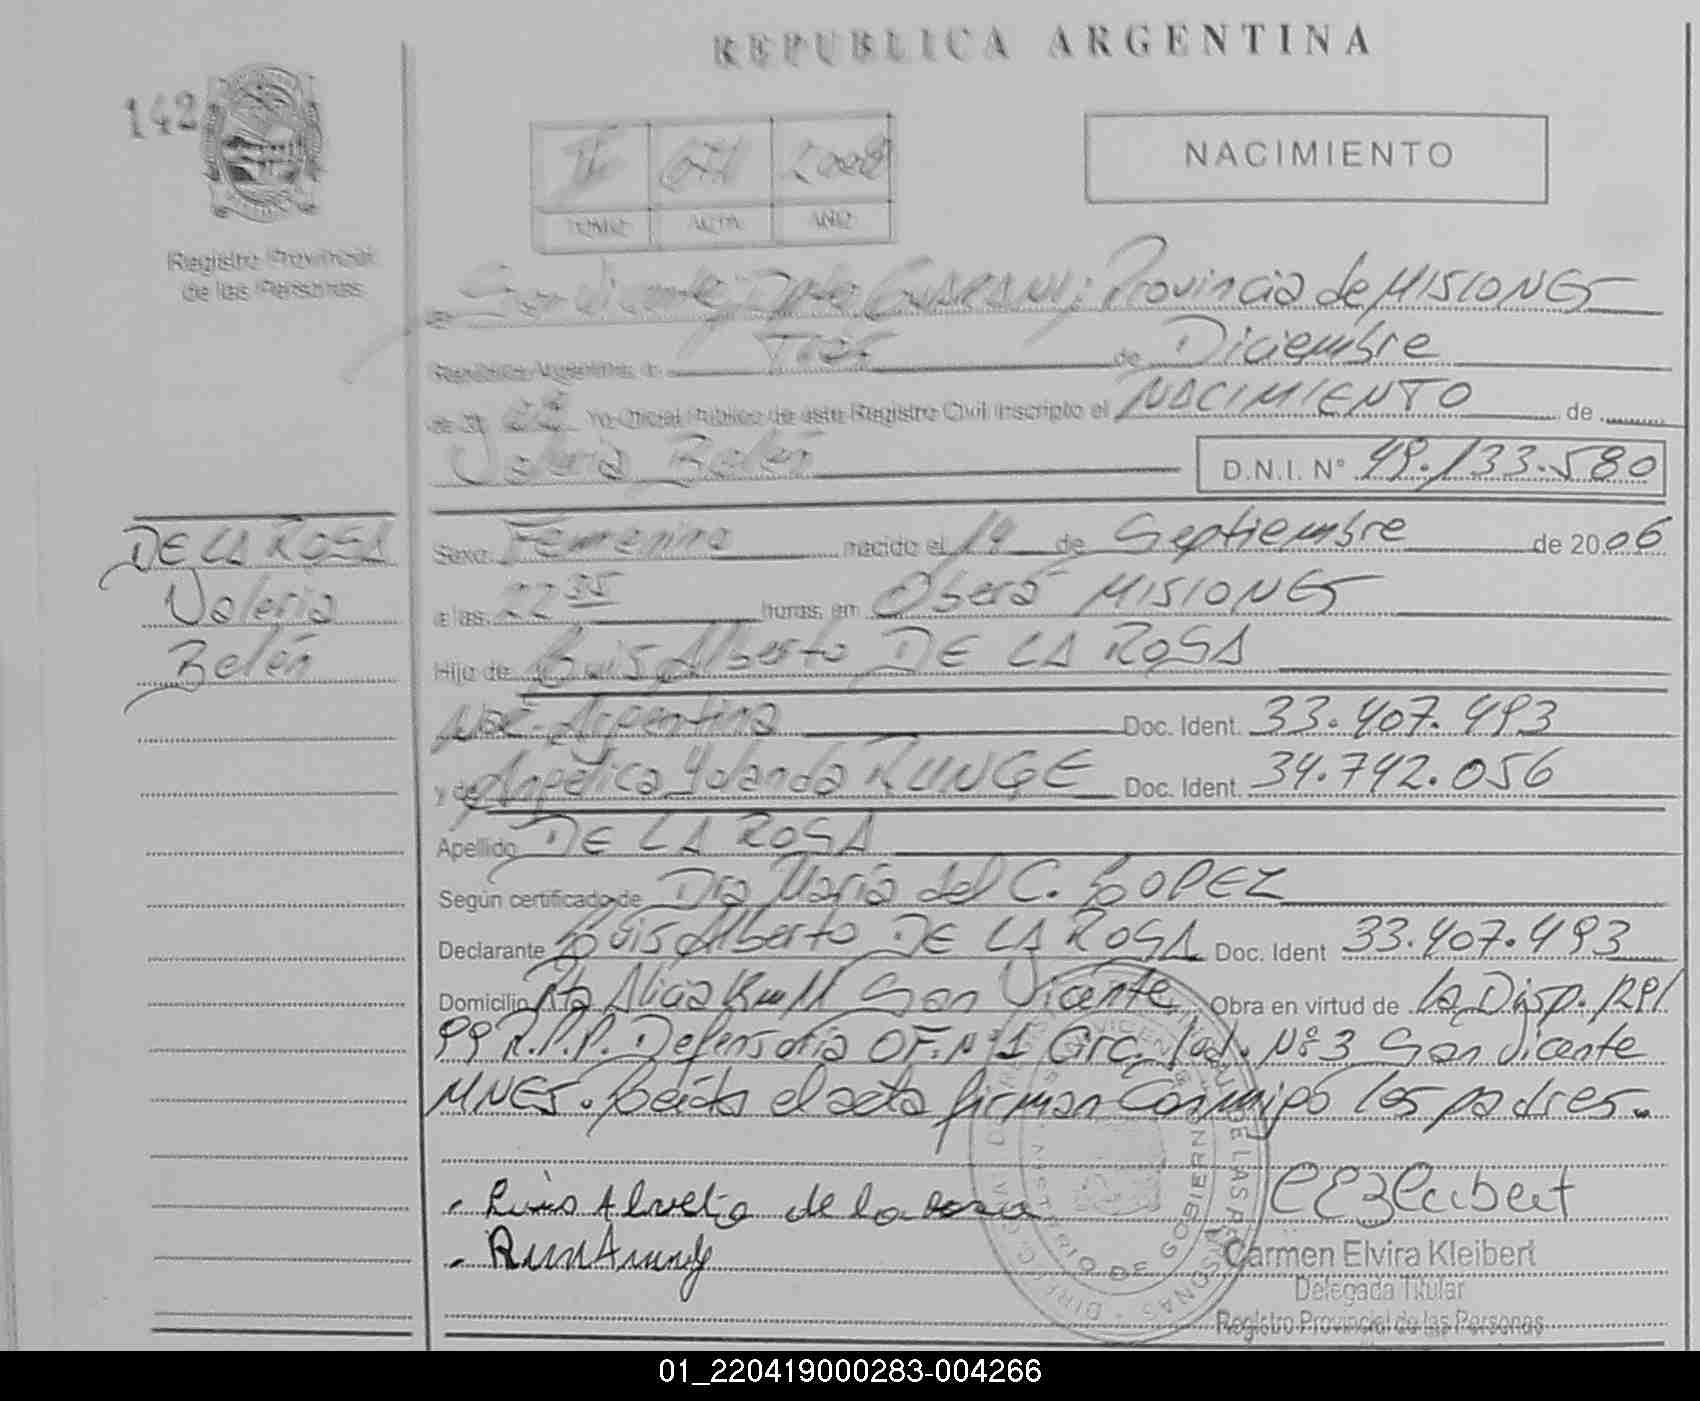 REPUBLICA ARGENTINA
142
II 2008
TOMO ACTA AÑO
NACIMIENTO
Registro Provincial
de las Personas
en San Vicente, Dpto Guarani; Provincia de MISIONES
República Argentina, a Tres de Diciembre
de 20 Yo Oficial Público de este Registro Civil inscripto el NACIMIENTO de
Valeria Belén D.N.I. Nº 49.133.580
DE LA ROSA
Valeria
Belén
Sexo Femenino nacido el 19 de Septiembre de 2006
a las 22 35 horas, en Oberá MISIONES
Hijo de Luis Alberto DE LA ROSA
Nac. Argentina Doc. Ident. 33.407.493
y de Angélica Yolanda RUNGE Doc. Ident. 34.742.056
Apellido DE LA ROSA
Según certificado de Dra María del C. LOPEZ
Declarante Luis Alberto DE LA ROSA Doc. Ident 33.407.493
Domicilio Alicia San Vicente Obra en virtud de la Disp.
99 R.P.P. Defensoria OF. Nº 1 Circ. Jud. Nº 3 San Vicente
MNES. Leída el acta firman conmigo los padres.
Luis Alvelto de la rosa
Carmen Elvira Kleibert
Delegada Titular
Registro Provincial de las Personas
01_220419000283-004266